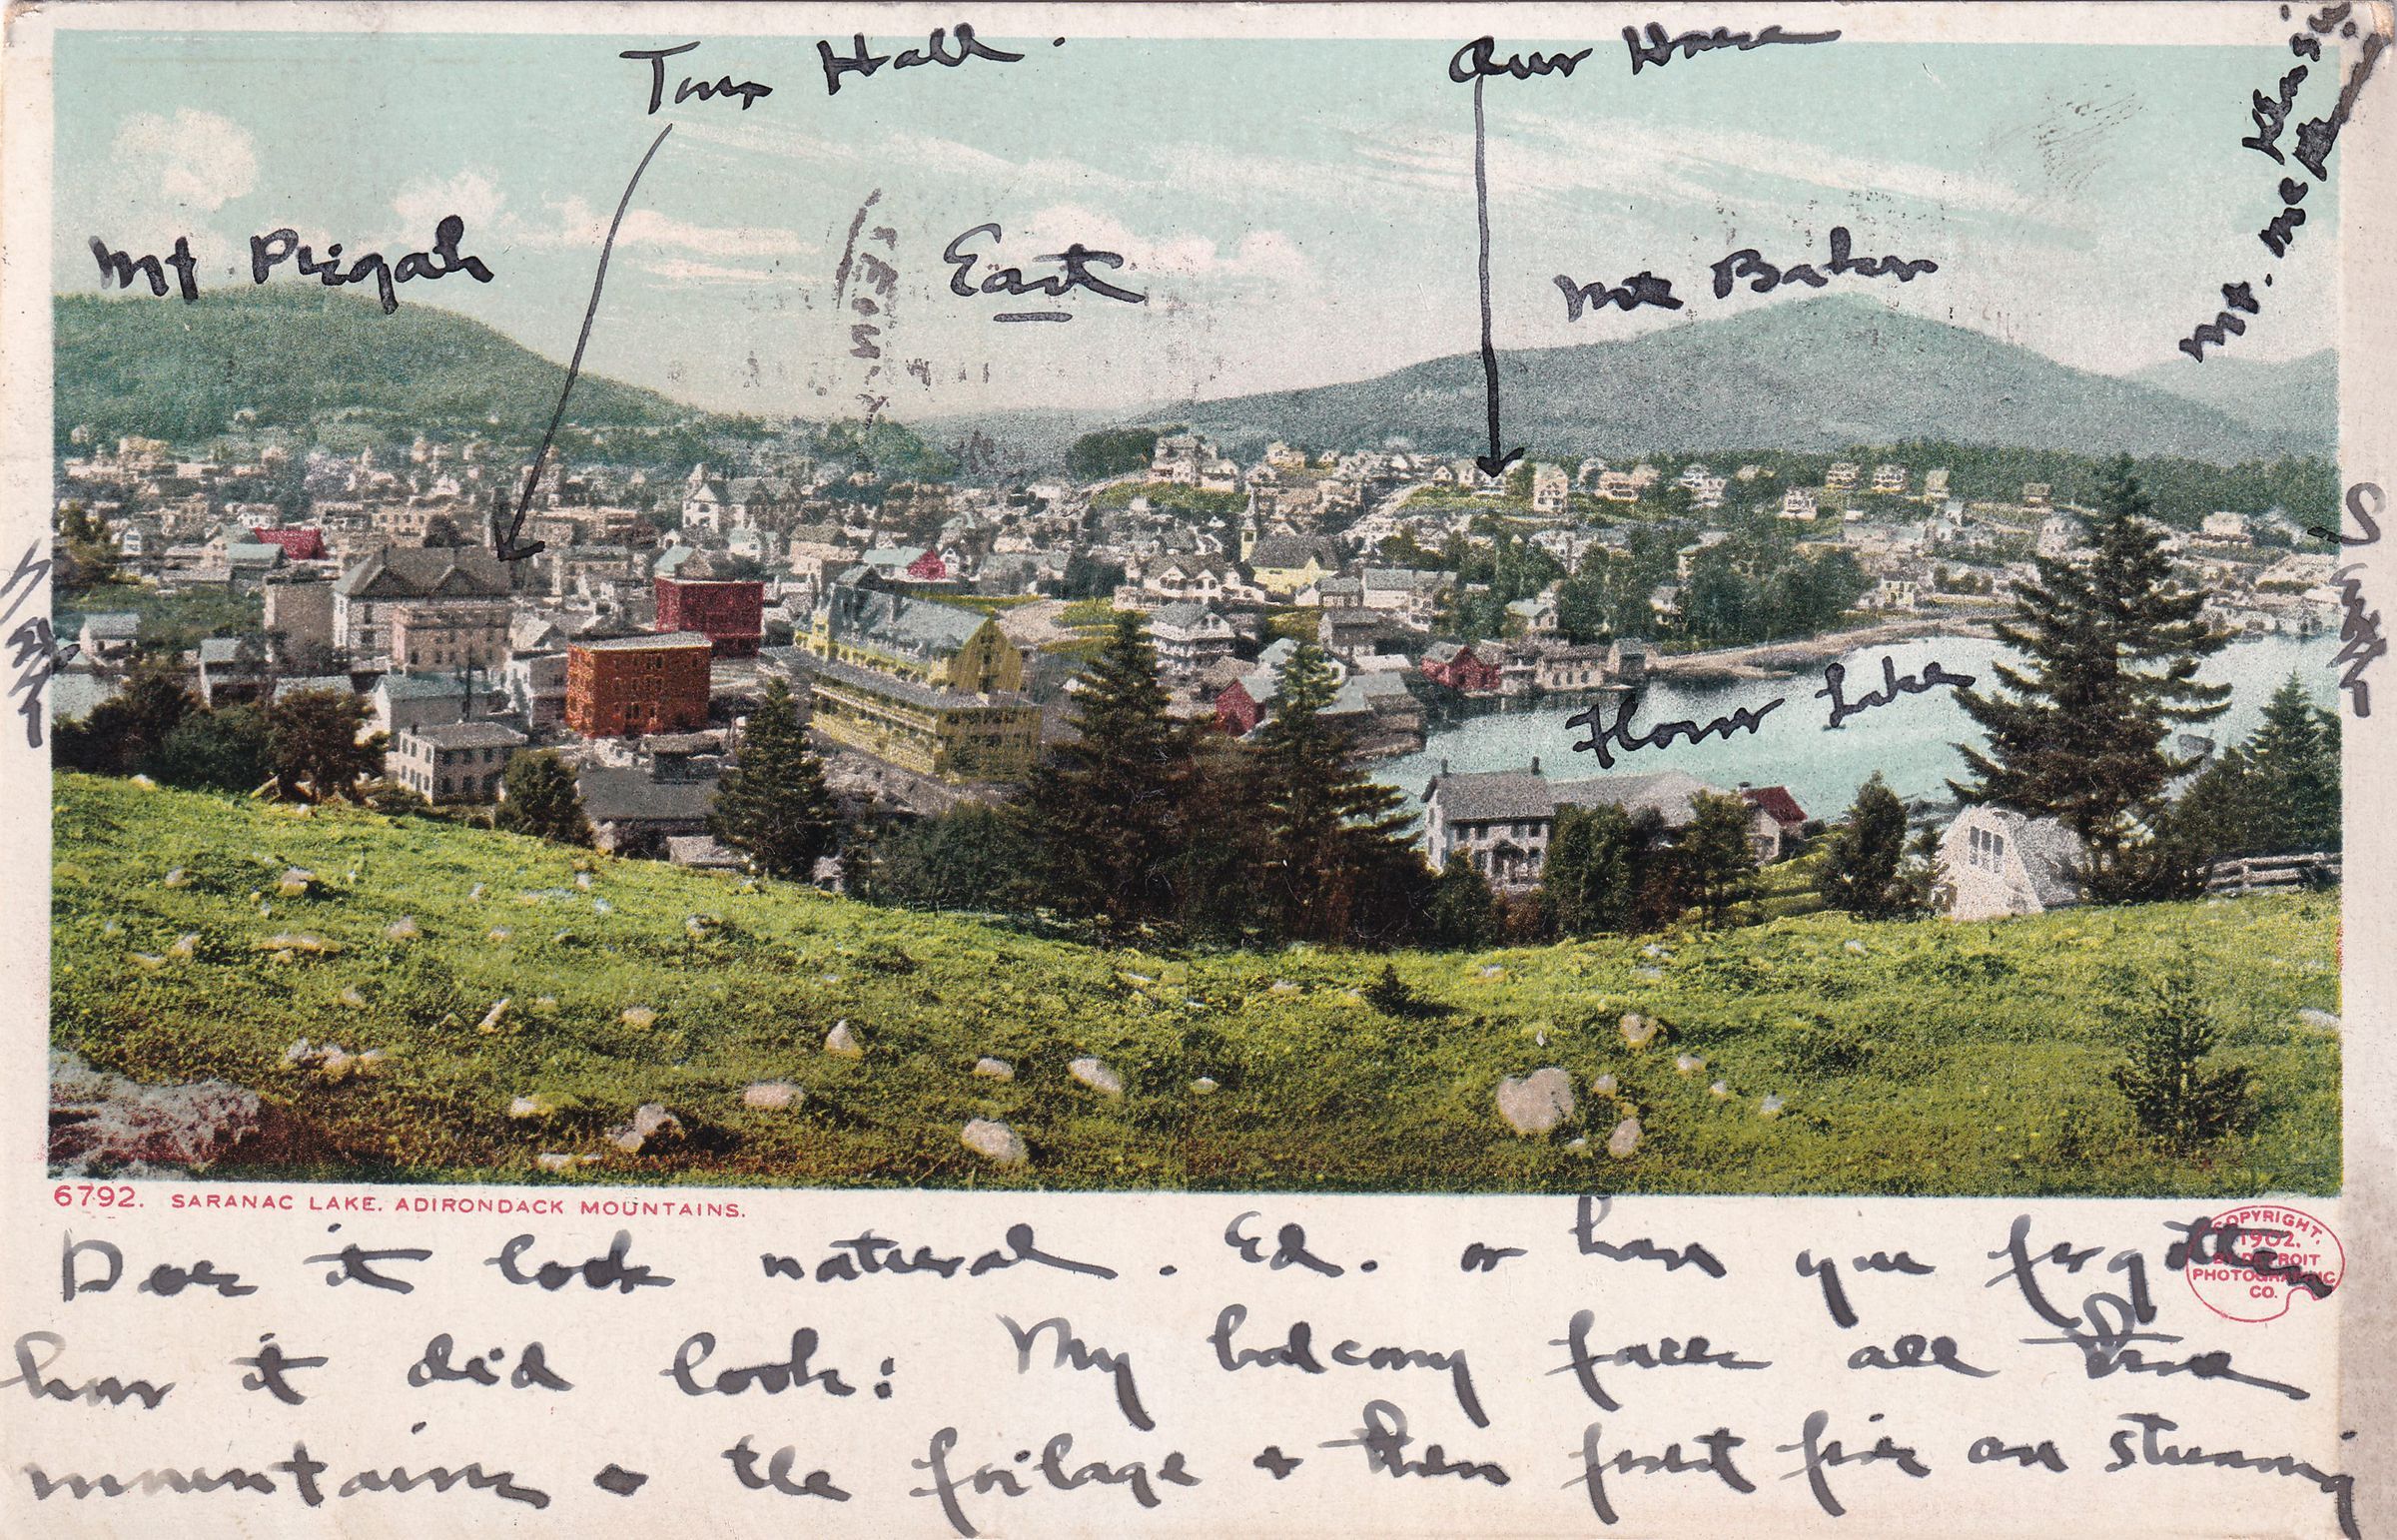 Town Hall.
Our House
Mt. Pisgah
East
Mt Baker
Mt. McKenzie
S
Flower Lake
6792. SARANAC LAKE. ADIRONDACK MOUNTAINS.
COPYRIGHT.
1902.
BY DETROIT
PHOTOGRAPHIC
CO.
Does it look natural. Ed. or have you forgotten
how it did look: My balcony faces all these
mountains + the foilage + then forest fire are stunning